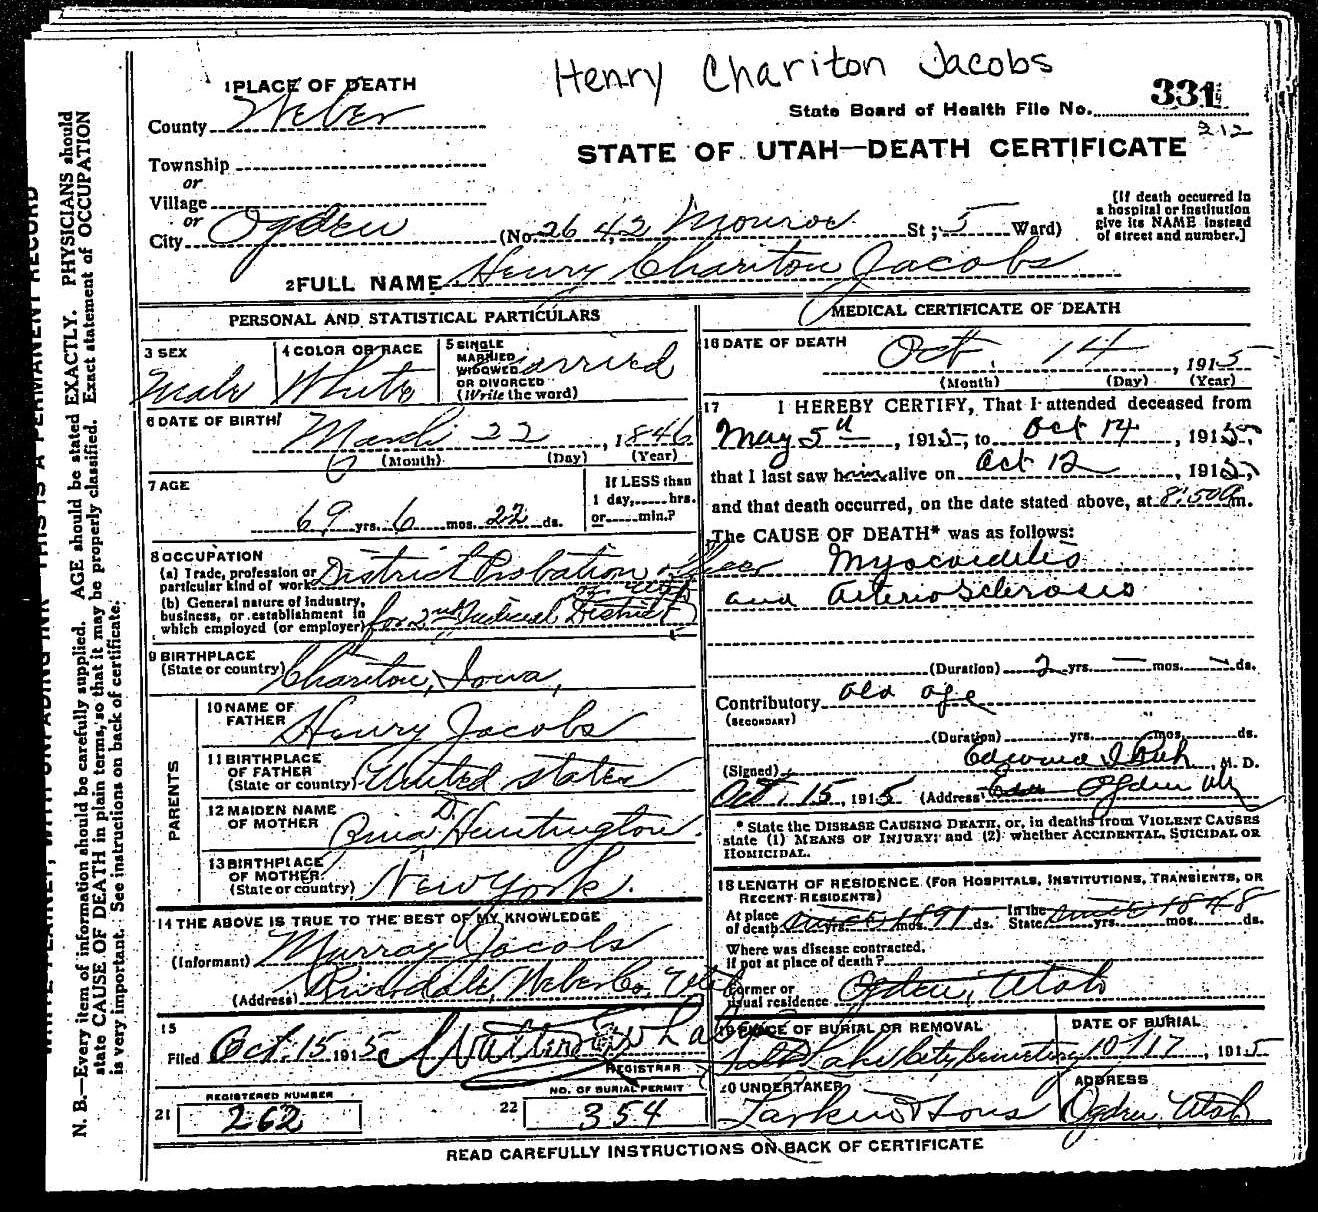 Henry Chariton Jacobs
1 PLACE OF DEATH
County Weber
State Board of Health File No. 331
212
STATE OF UTAH—DEATH CERTIFICATE
Township
or
Village
or
City Ogden (No. 2642 Monroe St; 5 Ward)
[If death occurred in
a hospital or institution
give its NAME instead
of street and number.]
2 FULL NAME Henry Chariton Jacobs
PERSONAL AND STATISTICAL PARTICULARS
3 SEX
Male
4 COLOR OR RACE
White
5 SINGLE
MARRIED
WIDOWED
OR DIVORCED
(Write the word)
Married
6 DATE OF BIRTH
March 22, 1846
(Month) (Day) (Year)
7 AGE
69 yrs. 6 mos. 22 ds.
If LESS than
1 day,......hrs.
or......min.?
8 OCCUPATION
(a) Trade, profession or
particular kind of work District Probation officer
(b) General nature of industry,
business, or establishment in
which employed (or employer) for 2nd Judicial District
of Utah
9 BIRTHPLACE
(State or country) Chariton, Iowa,
PARENTS
10 NAME OF
FATHER Henry Jacobs
11 BIRTHPLACE
OF FATHER
(State or country) United States
12 MAIDEN NAME
OF MOTHER Zina D. Huntington
13 BIRTHPLACE
OF MOTHER
(State or country) New York.
14 THE ABOVE IS TRUE TO THE BEST OF MY KNOWLEDGE
(Informant) Murray Jacobs
(Address) Riverdale, Weber Co, Utah
15
Filed Oct. 15 1915
REGISTRAR
REGISTERED NUMBER
21 262
NO. OF BURIAL PERMIT
22 354
MEDICAL CERTIFICATE OF DEATH
16 DATE OF DEATH
Oct. 14, 1915
(Month) (Day) (Year)
17 I HEREBY CERTIFY, That I attended deceased from
May 5th, 1915, to Oct 14, 1915,
that I last saw him alive on Oct 12, 1915,
and that death occurred, on the date stated above, at 8:50 a m.
The CAUSE OF DEATH* was as follows:
Myocardetis
and Arterio Sclerosis
(Duration) 2 yrs. — mos. — ds.
Contributory old age
(SECONDARY)
(Duration) yrs. mos. ds.
(Signed) Edward I , M. D.
Oct. 15, 1915 (Address) Ogden Ut
* State the DISEASE CAUSING DEATH, or, in deaths from VIOLENT CAUSES
state (1) MEANS OF INJURY; and (2) whether ACCIDENTAL, SUICIDAL OR
HOMICIDAL.
18 LENGTH OF RESIDENCE (FOR HOSPITALS, INSTITUTIONS, TRANSIENTS, OR
RECENT RESIDENTS)
At place
of death since 1891 yrs. mos. ds. In the
State since 1848 yrs. mos. ds.
Where was disease contracted,
if not at place of death?
Former or
usual residence Ogden, Utah
19 PLACE OF BURIAL OR REMOVAL
Salt Lake City Cemetery
DATE OF BURIAL
10/17, 1915
20 UNDERTAKER
Larkin & Sons
ADDRESS
Ogden, Utah
READ CAREFULLY INSTRUCTIONS ON BACK OF CERTIFICATE
WRITE PLAINLY, WITH UNFADING INK—THIS IS A PERMANENT RECORD
N. B.—Every item of information should be carefully supplied. AGE should be stated EXACTLY. PHYSICIANS should
state CAUSE OF DEATH in plain terms, so that it may be properly classified. Exact statement of OCCUPATION
is very important. See instructions on back of certificate.